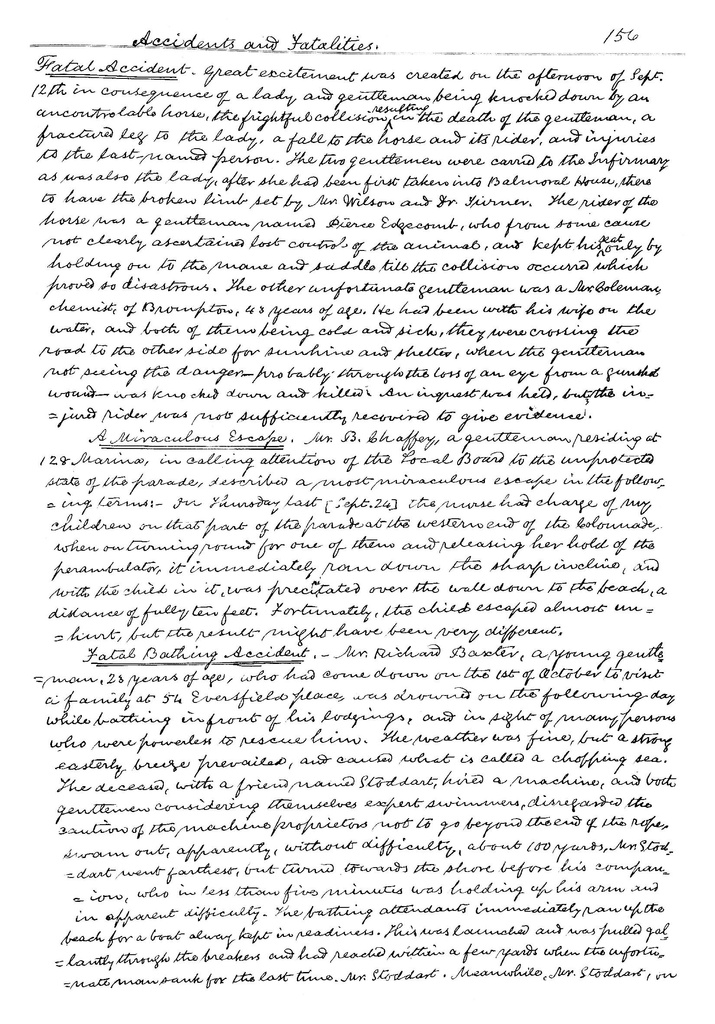 Accidents and Fatalities. 156
Fatal Accident. Great excitement was created on the afternoon of Sept.
12th in consequence of a lady and gentleman being knocked down by an
uncontrolable horse, the frightful collision resulting in the death of the gentleman, a
fractured leg to the lady, a fall to the horse and its rider, and injuries
to the last-named person. The two gentlemen were carried to the Infirmary
as was also the lady, after she had been first taken into Balmoral House, there
to have the broken limb set by Mr. Wilson and Dr. Turner. The rider of the
horse was a gentleman named Pierce Edgecomb, who from some cause
not clearly ascertained lost control of the animal, and kept his seat only by
holding on to the mane and saddle till the collision occurred which
proved so disastrous. The other unfortunate gentleman was a Mr. Coleman,
chemist, of Brompton, 43 years of age. He had been with his wife on the
water, and both of them being cold and sick, they were crossing the
road to the other side for sunshine and shelter, when the gentleman
not seeing the danger—probably through the loss of an eye from a gunshot
wound—was knocked down and killed. An inquest was held, but the in=
=jured rider was not sufficiently recovered to give evidence.
A Miraculous Escape. Mr. B. Chaffey, a gentleman residing at
128 Marina, in calling attention of the Local Board to the unprotected
state of the parade, described a most miraculous escape in the follow=
=ing terms:- On Thursday last [Sept. 24] the nurse had charge of my
children on that part of the parade at the western end of the Colonnade,
when on turning round for one of them and releasing her hold of the
perambulator, it immediately ran down the sharp incline, and
with the child in it, was precitated over the wall down to the beach, a
distance of fully ten feet. Fortunately, the child escaped almost un=
=hurt, but the result might have been very different.
Fatal Bathing Accident. - Mr. Richard Baxter, a young gentle=
=man, 23 years of age, who had come down on the 1st of October to visit
a family at 54 Eversfield place, was drowned on the following day
while bathing in front of his lodgings, and in sight of many persons
who were powerless to rescue him. The weather was fine, but a strong
easterly breeze prevailed, and caused what is called a chopping sea.
The deceased, with a friend named Stoddart, hired a machine, and both
gentlemen considering themselves expert swimmers, disregarded the
caution of the machine proprietors not to go beyond the end of the rope,
swam out, apparently, without difficulty, about 100 yards, Mr. Stod=
=dart went farthest, but turned towards the shore before his compan=
=ion, who in less than five minutes was holding up his arm and
in apparent difficulty. The bathing attendants immediately ran up the
beach for a boat alway kept in readiness. This was launched and was pulled gal=
=lantly through the breakers and had reached within a few yards when the unfortu=
=nate man sank for the last time. Mr. Stoddart. Meanwhile, Mr. Stoddart, on